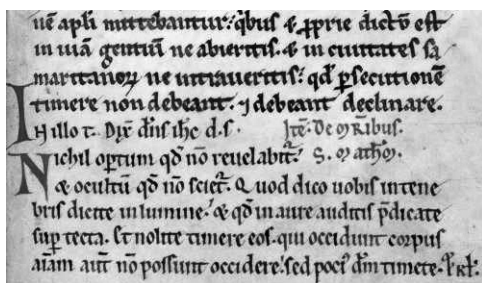 uē apłi mittebantur. qͥbus & ꝓprie dictū est
in uiā gentiū ne abieritis. & in ciuitates sa
maritanoꝝ ne intraueritis: qd̄ ꝑsecutionē
timere non debeant. ⁊ debeant declinare.
IN illo t. Dix̄ dn̄s ih̄c d. s. Itē. De mr̄ibus.
Nichil optum qd̄ nō reuelabit᷑: S. Matħm.
& ocultū qd̄ nō sciet᷑. Quod dico uobis in tene
bris dicite in lumine. & qd̄ in aure auditis p̄dicate
suꝑ tecta. Et nolite timere eos. qui occidunt corpus
aīam aut̄ nō possunt occidere: sed poci᷒ dm̄ timete.